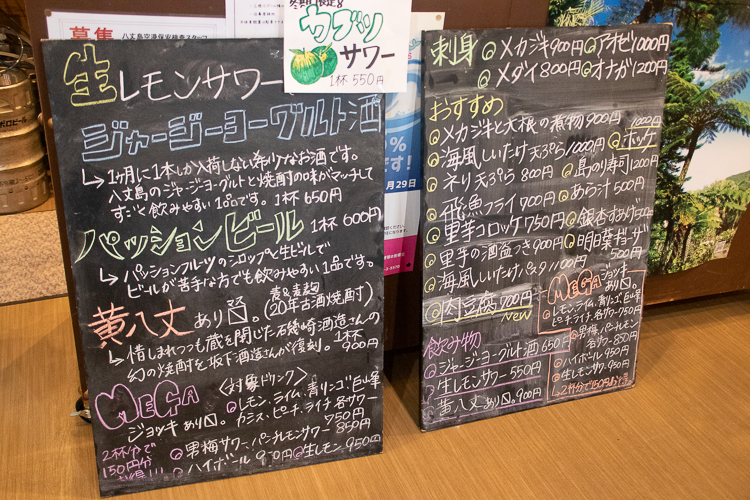 募集 八丈島空港保安検査スタッフ
冬期限定8
カブツ
サワー
1杯550円
生レモンサワー
ジャージーヨーグルト酒
↳1ヶ月に1本しか入荷しない
八丈島のジャージーヨーグルトと焼酎の味がマッチして
すごく飲みやすい1品です。1杯650円
パッションビール 1杯600円
↳パッションフルーツのシロップと生ビールで
ビールが苦手な方でも飲みやすい1品です。
黄八丈 あり〼。(20年古酒焼酎)
↳惜しまれつつも蔵を閉じた石磯崎酒造さんの
幻の焼酎を坂下酒造さんが復刻。1杯900円
MEGA
ジョッキあり〼。
2杯分で
150円分
〈対象ドリンク〉
◎レモン、ライム、青リンゴ、巨峰
カシス、ピーチ、ライチ、各サワー
750円
◎男梅サワー、パーチレモンサワー 850円
◎ハイボール 950円 ◎生レモン 950円
刺身 ◎メカジキ900円 ◎アオゼ1000円
◎メダイ800円 ◎オナガ1200円
おすすめ
◎メカジキと大根の煮物900円
◎海風しいたけ天ぷら1000円
◎ネリ天ぷら800円
◎飛魚フライ900円
◎里芋コロッケ750円
◎里芋の酒盗つき900円
◎海風しいたけバター1100円
◎肉豆腐900円
NEW
1000円
◎ホッケ
◎島のり寿司1200円
◎あら汁500円
◎銀杏すあげ500円
◎明日葉ギョーザ
500円
MEGA ジョッキ
あり〼。
◎レモン、ライム、青リンゴ、巨峰
ピーチ、ライチ、各サワー750円
◎男梅、パーチレモン
各サワー850円
◎ハイボール950円
◎生レモン950円
2杯分で150円お得
飲み物
◎ジャージーヨーグルト酒 650円
◎生レモンサワー 550円
黄八丈あり〼。900円
月29日